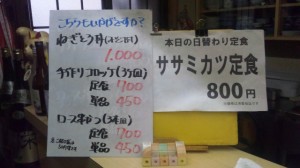 こちらもいかがですか?
ねぎとろ丼
1,000
手作りコロッケ
定食 700
単品 450
ロースかつ
定食 700
単品 450
本日の日替わり定食
ササミカツ定食
800円